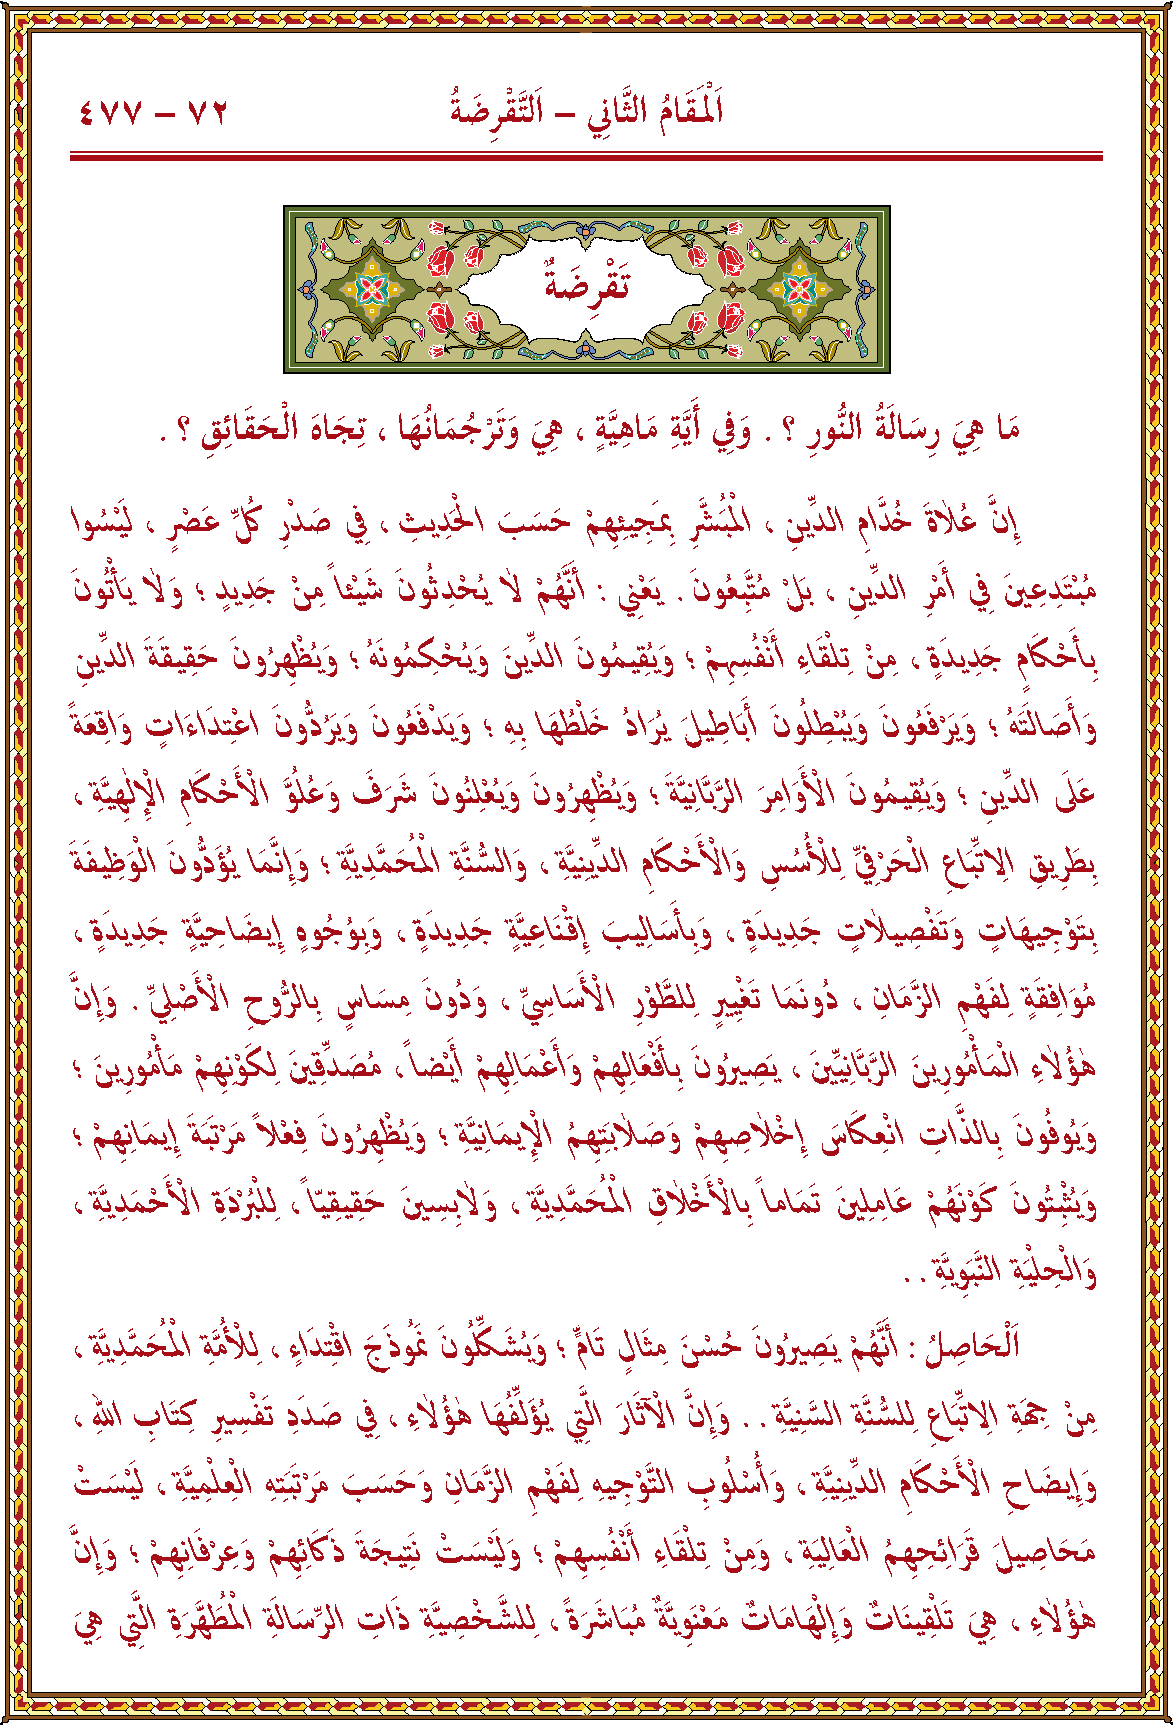 اَلْمَقَامُ الثَّانِي – اَلتَّقْرِضَةُ
٧٢ – ٤٧٧
تَقْرِضَةٌ
مَا هِيَ رِسَالَةُ النُّورِ ؟ . وَفِي أَيَّةِ مَاهِيَّةٍ ، هِيَ وَتَرْجُمَانُهَا ، تِجَاهَ الْحَقَائِقِ ؟ .
إِنَّ عُلَاةَ خُدَّامِ الدِّينِ ، الْمُبَشَّرِ بِمَجِيئِهِمْ حَسَبَ الْحَدِيثِ ، فِي صَدْرِ كُلِّ عَصْرٍ ، لَيْسُوا
مُبْتَدِعِينَ فِي أَمْرِ الدِّينِ ، بَلْ مُتَّبِعُونَ . يَعْنِي : أَنَّهُمْ لَا يُحْدِثُونَ شَيْئاً مِنْ جَدِيدٍ ؛ وَلَا يَأْتُونَ
بِأَحْكَامٍ جَدِيدَةٍ ، مِنْ تِلْقَاءِ أَنْفُسِهِمْ ؛ وَيُقِيمُونَ الدِّينَ وَيُحْكِمُونَهُ ؛ وَيُظْهِرُونَ حَقِيقَةَ الدِّينِ
وَأَصَالَتَهُ ؛ وَيَرْفَعُونَ وَيُبْطِلُونَ أَبَاطِيلَ يُرَادُ خَلْطُهَا بِهِ ؛ وَيَدْفَعُونَ وَيَرُدُّونَ اعْتِدَاءَاتٍ وَاقِعَةً
عَلَى الدِّينِ ؛ وَيُقِيمُونَ الْأَوَامِرَ الرَّبَّانِيَّةَ ؛ وَيُظْهِرُونَ وَيُعْلِنُونَ شَرَفَ وَعُلُوَّ الْأَحْكَامِ الْإِلٰهِيَّةِ ،
بِطَرِيقِ الِاتِّبَاعِ الْحَرْفِيِّ لِلْأُسُسِ وَالْأَحْكَامِ الدِّينِيَّةِ ، وَالسُّنَّةِ الْمُحَمَّدِيَّةِ ؛ وَإِنَّمَا يُؤَدُّونَ الْوَظِيفَةَ
بِتَوْجِيهَاتٍ وَتَفْصِيلَاتٍ جَدِيدَةٍ ، وَبِأَسَالِيبَ إِقْنَاعِيَّةٍ جَدِيدَةٍ ، وَبِوُجُوهٍ إِيضَاحِيَّةٍ جَدِيدَةٍ ،
مُوَافِقَةٍ لِفَهْمِ الزَّمَانِ ، دُونَمَا تَغْيِيرٍ لِلطَّوْرِ الْأَسَاسِيِّ ، وَدُونَ مِسَاسٍ بِالرُّوحِ الْأَصْلِيِّ . وَإِنَّ
هٰؤُلَاءِ الْمَأْمُورِينَ الرَّبَّانِيِّينَ ، يَصِيرُونَ بِأَفْعَالِهِمْ وَأَعْمَالِهِمْ أَيْضاً ، مُصَدِّقِينَ لِكَوْنِهِمْ مَأْمُورِينَ ؛
وَيُوفُونَ بِالذَّاتِ انْعِكَاسَ إِخْلَاصِهِمْ وَصَلَابَتِهِمُ الْإِيمَانِيَّةِ ؛ وَيُظْهِرُونَ فِعْلاً مَرْتَبَةَ إِيمَانِهِمْ ؛
وَيُثْبِتُونَ كَوْنَهُمْ عَامِلِينَ تَمَاماً بِالْأَخْلَاقِ الْمُحَمَّدِيَّةِ ، وَلَابِسِينَ حَقِيقِيّاً ، لِلْبُرْدَةِ الْأَحْمَدِيَّةِ ،
وَالْحِلْيَةِ النَّبَوِيَّةِ . .
اَلْحَاصِلُ : أَنَّهُمْ يَصِيرُونَ حُسْنَ مِثَالٍ تَامٍّ ؛ وَيُشَكِّلُونَ نَمُوذَجَ اقْتِدَاءٍ ، لِلْأُمَّةِ الْمُحَمَّدِيَّةِ ،
مِنْ جِهَةِ الِاتِّبَاعِ لِلسُّنَّةِ السَّنِيَّةِ . . وَإِنَّ الْآثَارَ الَّتِي يُؤَلِّفُهَا هٰؤُلَاءِ ، فِي صَدَدِ تَفْسِيرِ كِتَابِ اللهِ ،
وَإِيضَاحِ الْأَحْكَامِ الدِّينِيَّةِ ، وَأُسْلُوبِ التَّوْجِيهِ لِفَهْمِ الزَّمَانِ وَحَسَبَ مَرْتَبَتِهِ الْعِلْمِيَّةِ ، لَيْسَتْ
مَحَاصِيلَ قَرَائِحِهِمُ الْعَالِيَةِ ، وَمِنْ تِلْقَاءِ أَنْفُسِهِمْ ؛ وَلَيْسَتْ نَتِيجَةَ ذَكَائِهِمْ وَعِرْفَانِهِمْ ؛ وَإِنَّ
هٰؤُلَاءِ ، هِيَ تَلْقِينَاتٌ وَإِلْهَامَاتٌ مَعْنَوِيَّةٌ مُبَاشَرَةً ، لِلشَّخْصِيَّةِ ذَاتِ الرِّسَالَةِ الْمُطَهَّرَةِ الَّتِي هِيَ